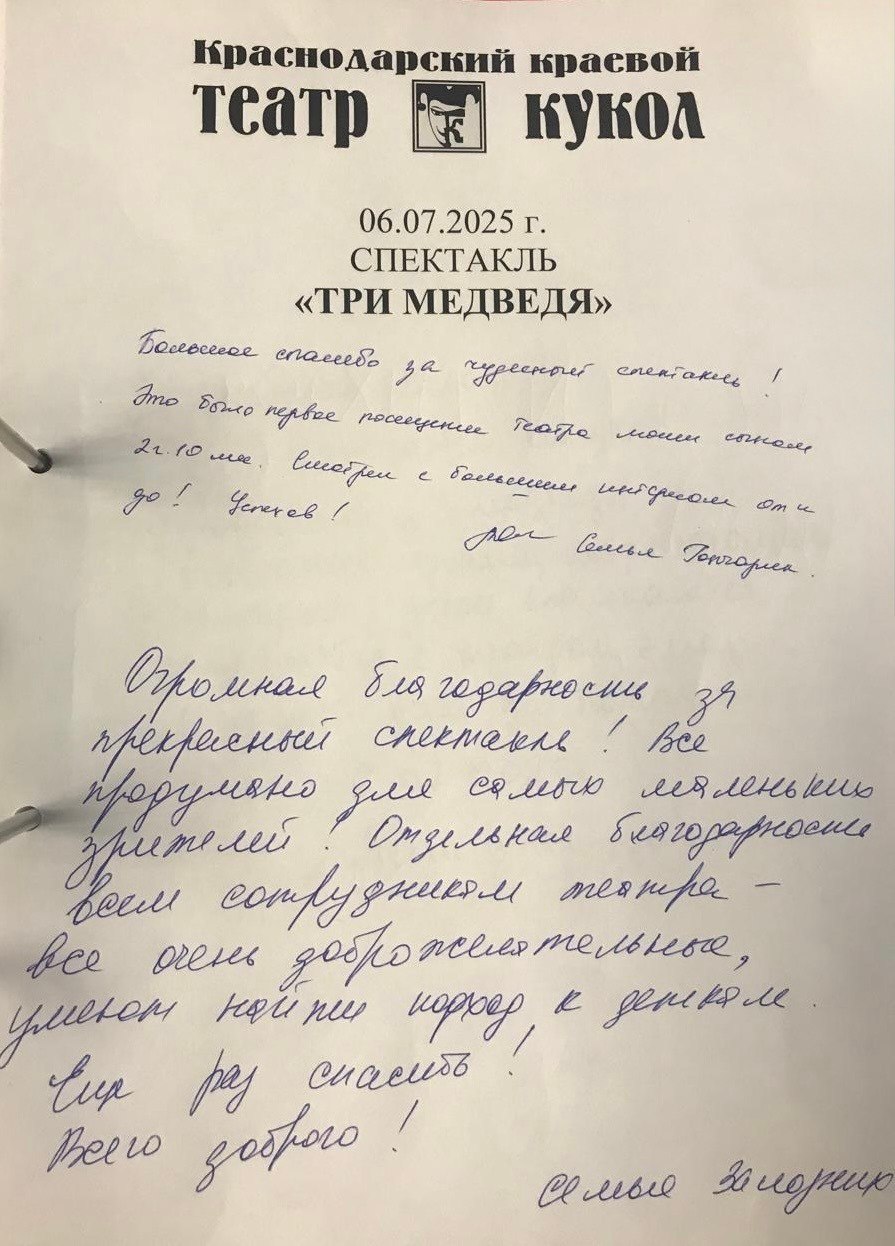 Краснодарский краевой
театр кукол
06.07.2025 г.
СПЕКТАКЛЬ
«ТРИ МЕДВЕДЯ»
Большое спасибо за чудесный спектакль !
Это было первое посещение театра моим сыном
2г. 10 мес. Смотрел с большим интересом от и
до! Успехов!
Семья
Огромная благодарность за
прекрасный спектакль! Все
продумано для самых маленьких
зрителей! Отдельная благодарность
всем сотрудникам театра –
все очень доброжелательные,
умеют найти подход к деткам.
Еще раз спасибо!
Всего доброго!
семья